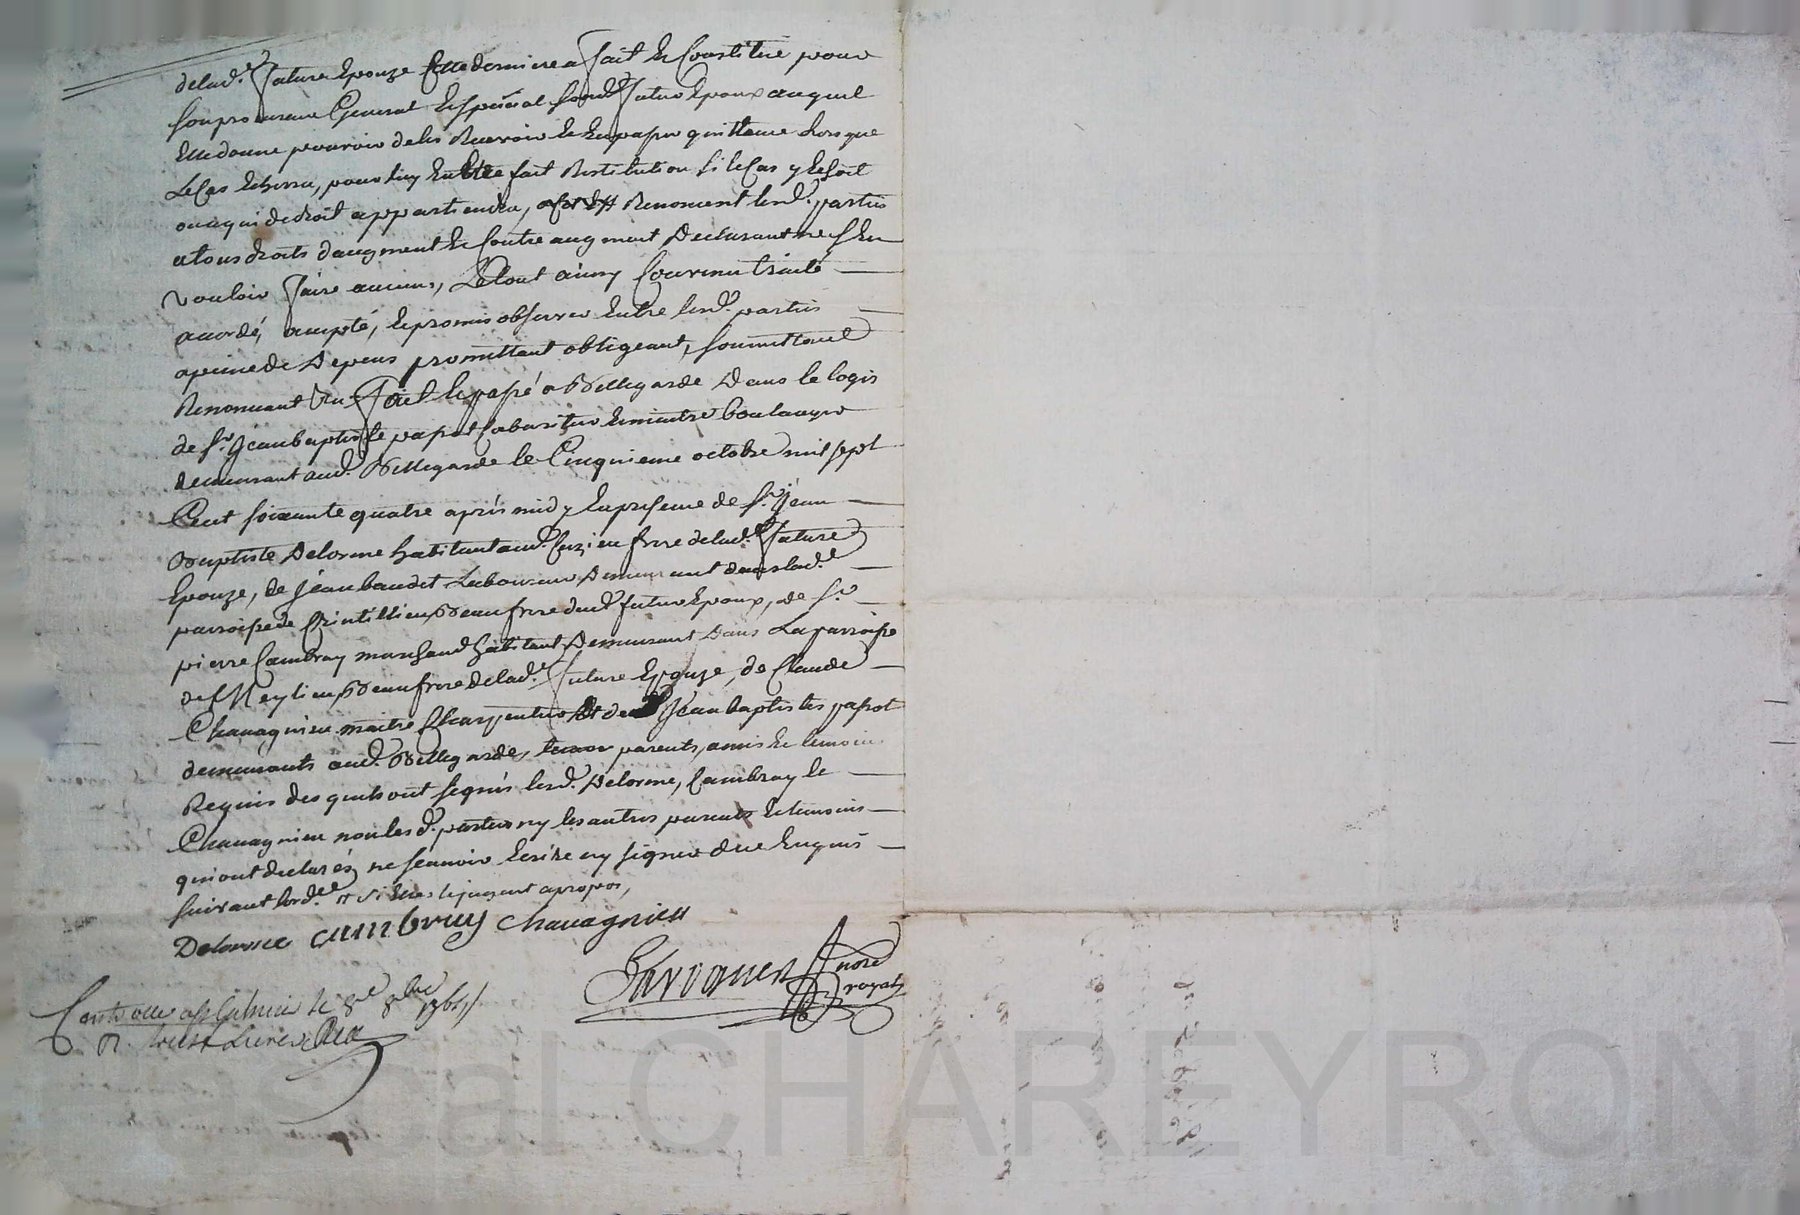 delad.e future Epouze Cette derniere a fait Et Constitué pour
son procureur General Et special led.t futur Epoux auquel
Elle donne pouvoir de les Recevoir Et En passer quittance Lors que
Le Cas Echerra, pour luy En Etre fait Restitution si le Cas y Echoit
ou a qui de droit appartiendra, Renoncent lesd. parties
a tous droits d'augment Et Contre augment Declarant ne s'En
vouloir faire aucuns, Le tout ainsy Convenu traité
accordé, accepté, Et promis observer Entre lesd. parties
a peine de Depens promettant obligeant, soumettant
Renonceant Fait Et passé a Bellegarde Dans le logis
de Sr. Jean baptiste papot Cabaretier Et maitre boulanger
demeurant aud. Bellegarde le Cinquieme octobre mil sept
Cent soixante quatre après midy En presence de Sr. Jean
Baptiste Delorme habitant aud. Cuzieu frere delad.e future
Epouze, de Jean baudet Laboureur Demeurant dans lad.e
parroisse de Beaufrere dud. futur Epoux, de Sr.
pierre Cambray marchand habitant Demeurant Dans La parroisse
de Meylieu Beaufrere delad.e future Epouze, de Claude
Chavagnieu maitre Charpentier Et de Jean baptiste papot
demeurants aud. Bellegarde, parents, amis Et temoins
Requis desquels ont signés lesd. Delorme, Cambray Et
Chavagnieu non lesd. parties ny les autres parents Et temoins
qui ont declarés ne scavoir Ecrire ny signer de ce Enquis
suivant lord.ce Et si Elles le jugent a propos,
Delorme cambray chavagnieu
nore
royal
Controlle a St Galmier le 8e 8bre 1764